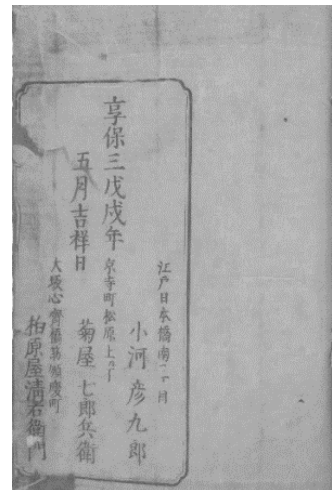 享保三戊戌年
五月吉祥日
江戸日本橋南一丁目
小河彦九郎
京寺町松原上ル丁
菊屋七郎兵衛
大坂心齋橋筋順慶町
柏原屋清右衛門